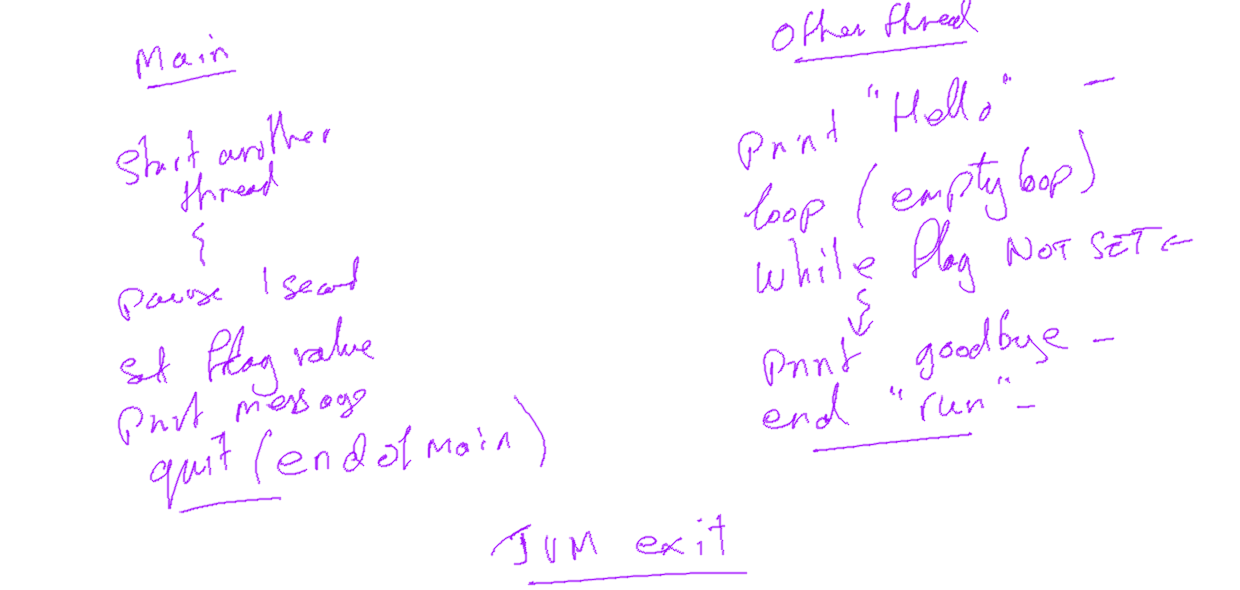 Main
Start another
thread
{
pause 1 second
set flag value
Print message
quit (end of main)
Other thread
Print "Hello" –
loop (empty loop)
while flag NOT SET ←
Print goodbye –
end "run" –
JVM exit